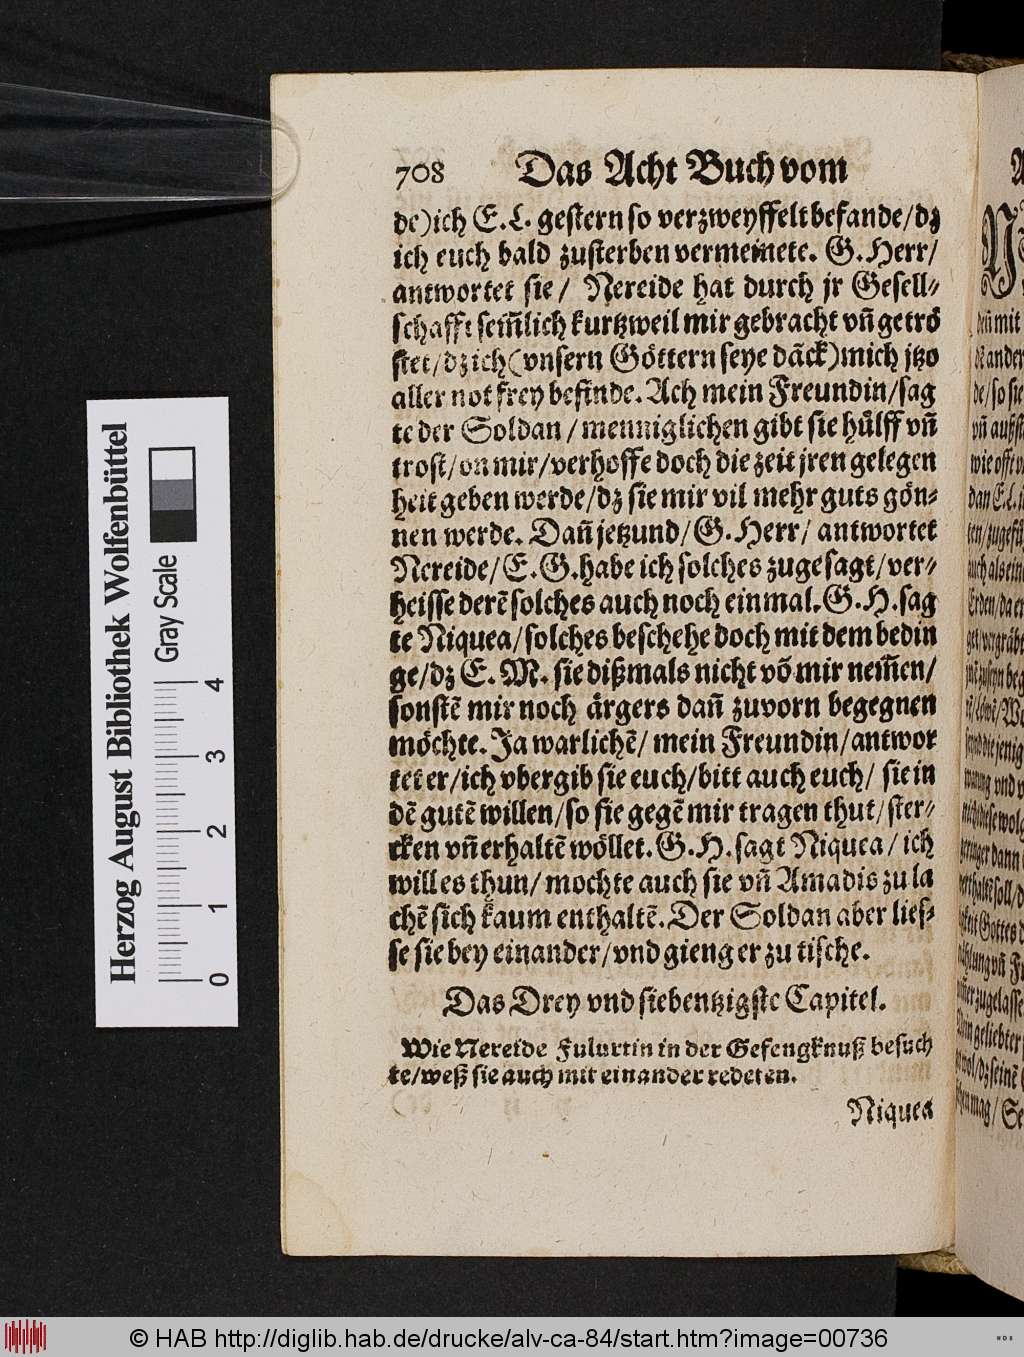 708 Das Acht Buch vom
de) ich E. L. gestern so verzweyffelt befande/dz
ich euch bald zusterben vermeinete. G. Herr/
antwortet sie/ Nereide hat durch jr Gesell-
schafft sem̃lich kurtzweil mir gebracht vñ getrö
stet/dz ich (vnsern Göttern seye dãck) mich jtzo
aller not frey befinde. Ach mein Freundin/sag
te der Soldan/ menniglichen gibt sie hülff vñ
trost/on mir/verhoffe doch die zeit jren gelegen
heit geben werde/dz sie mir vil mehr guts gön-
nen werde. Dañ jetzund/G. Herr/ antwortet
Nereide/E. G. habe ich solches zugesagt/ver-
heisse derẽ solches auch noch einmal. G. H. sag
te Niquea/solches beschehe doch mit dem bedin
ge/dz E. M. sie dißmals nicht võ mir nem̃en/
sonstẽ mir noch ärgers dañ zuvorn begegnen
möchte. Ja warlichẽ/ mein Freundin/antwor
tet er/ich vbergib sie euch/bitt auch euch/ sie in
dẽ gutẽ willen/so sie gegẽ mir tragen thut/ster-
cken vñ erhaltẽ wöllet. G. H. sagt Niquea/ ich
will es thun/ mochte auch sie vñ Amadis zu la
chẽ sich kaum enthaltẽ. Der Soldan aber lies-
se sie bey einander/vnd gieng er zu tische.
Das Drey vnd siebentzigste Capitel.
Wie Nereide Fulurtin in der Gefengknuß besuch
te/weß sie auch mit einander redeten.
Niquea
A
N
deñ mit
Rander
de/so sie
vñ außst
wie offt
dan E. L.
ten/zugefü
auch als eine
Erden/da er
get/vergräbt
seynd die jenig
nicht diese wolg
geringer dann
erhaltẽ soll/d
Gottes d
zugelassen
geliebter
wol/dz seinẽ
mag/ Se
Herzog August Bibliothek Wolfenbüttel
Gray Scale
0 1 2 3 4
© HAB http://diglib.hab.de/drucke/alv-ca-84/start.htm?image=00736
WDB